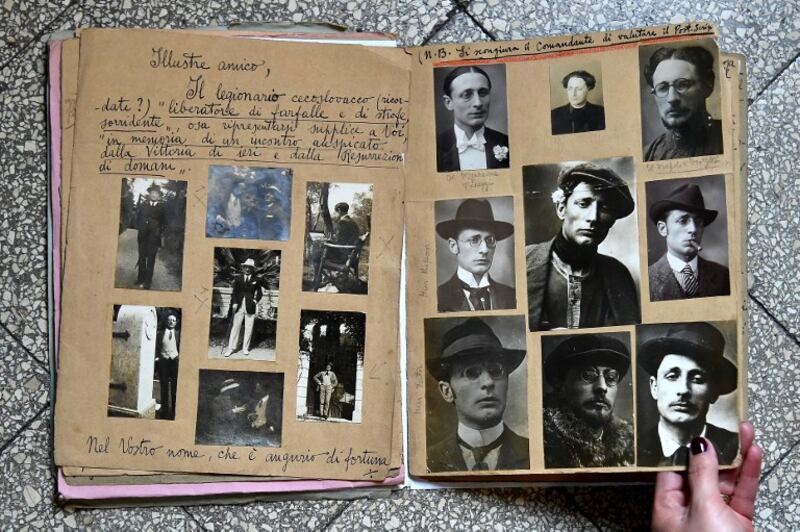 Illustre amico,
Il legionario cecoslovacco (ricor-
-date?) "liberatore di farfalle e di strofe,
sorridente", osa ripresentarsi supplice a Voi,
"in memoria di un incontro auspicato
dalla Vittoria di ieri e dalla Resurrezione
di domani".
Nel Vostro nome, che è augurio di fortuna
(N.B. Si scongiura il Comandante di valutare il Post. Scrip